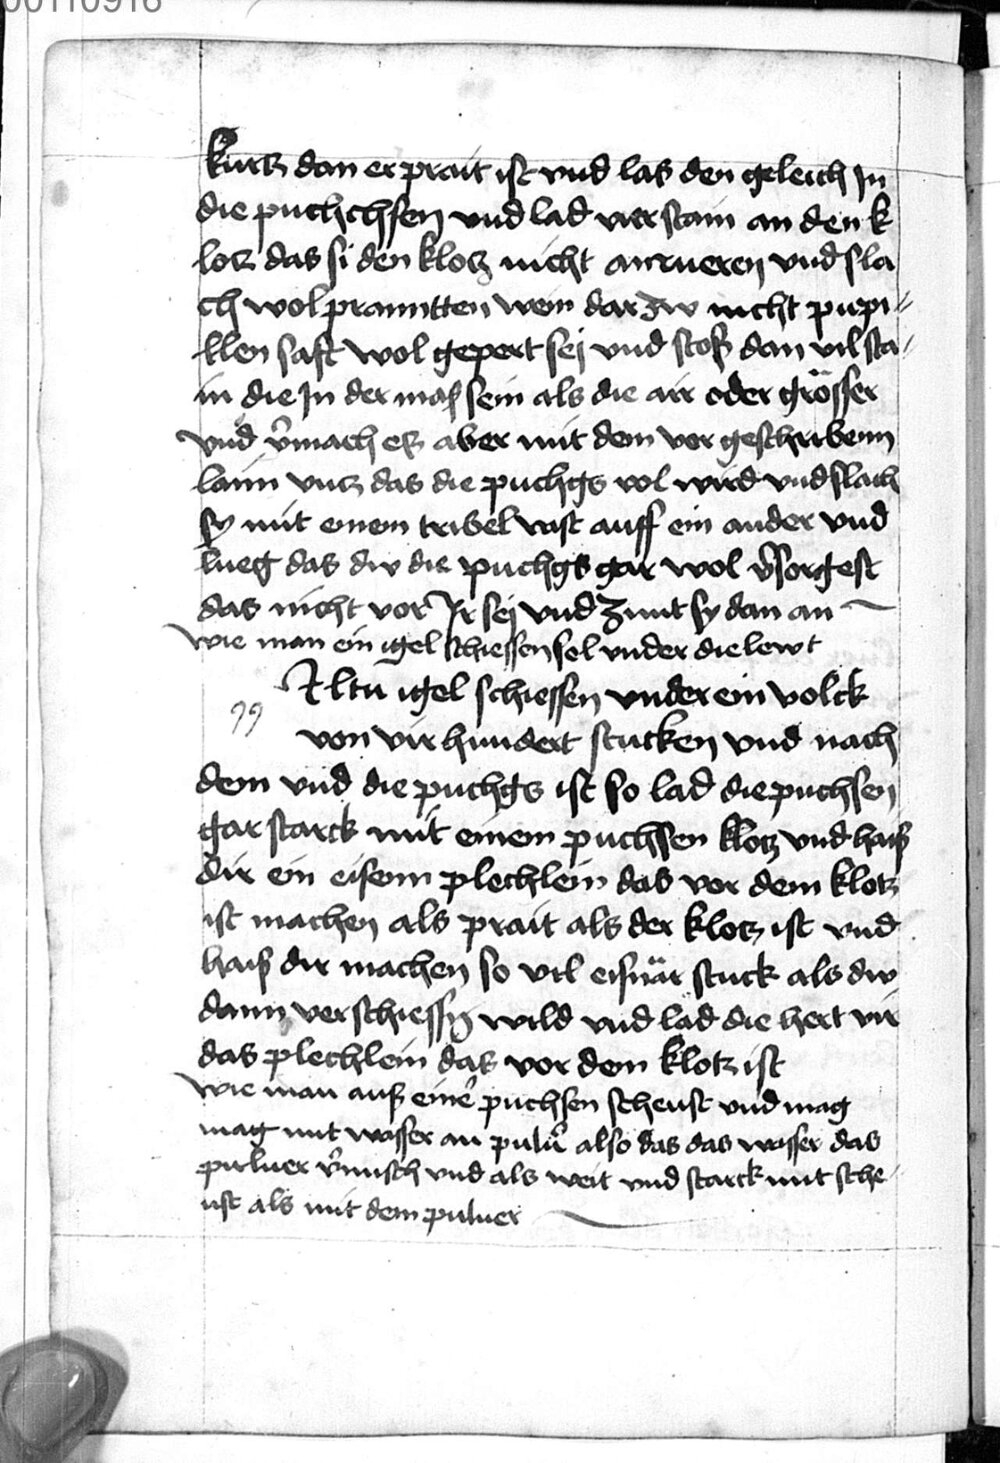 00110916
kurtz dan er prait ist vnd las den geleich In
die puchchsen vnd lad vier stain an den k
lotz das si den klotz nicht anrueren vnd sla
ch wol pranntten wein dar zw nicht pupi//
llen saft wol gepert sej vnd stoß dan vil sta//
in die In der maß sein als die air oder grösser
vnd v̄mach es aber mit dem vor geschribenn
laim vntz das die puchgs vol wird vnd slach
sy mit einem tribel vast auff ein ander vnd
lueg das dw die puchgs gar wol v̄sorgest
das nicht vor Ir sej vnd zunt sy dan an
wie man ein igel schiessen sol vnder die lewt
Iltu igel schiessen vnder ein volck
99
von vir hundert stucken vnd nach
dem vnd die puchgs ist so lad die puchsen
gar starck mit einem puchsen klotz vnd haiß
dir ein eisenn plechlein das vor dem klotz
ist machen als prait als der klotz ist vnd
haiß dir machen so vil eisnär stuck als dw
dann verschiessn wild vnd lad die hert vir
das plechlein das vor dem klotz ist
wie man auß einer puchsen scheust vnd mag
mag mit wasser an puluer also das das wasser das
puluer v̄misch vnd als weit vnd starck mit sche
ust als mit dem puluer